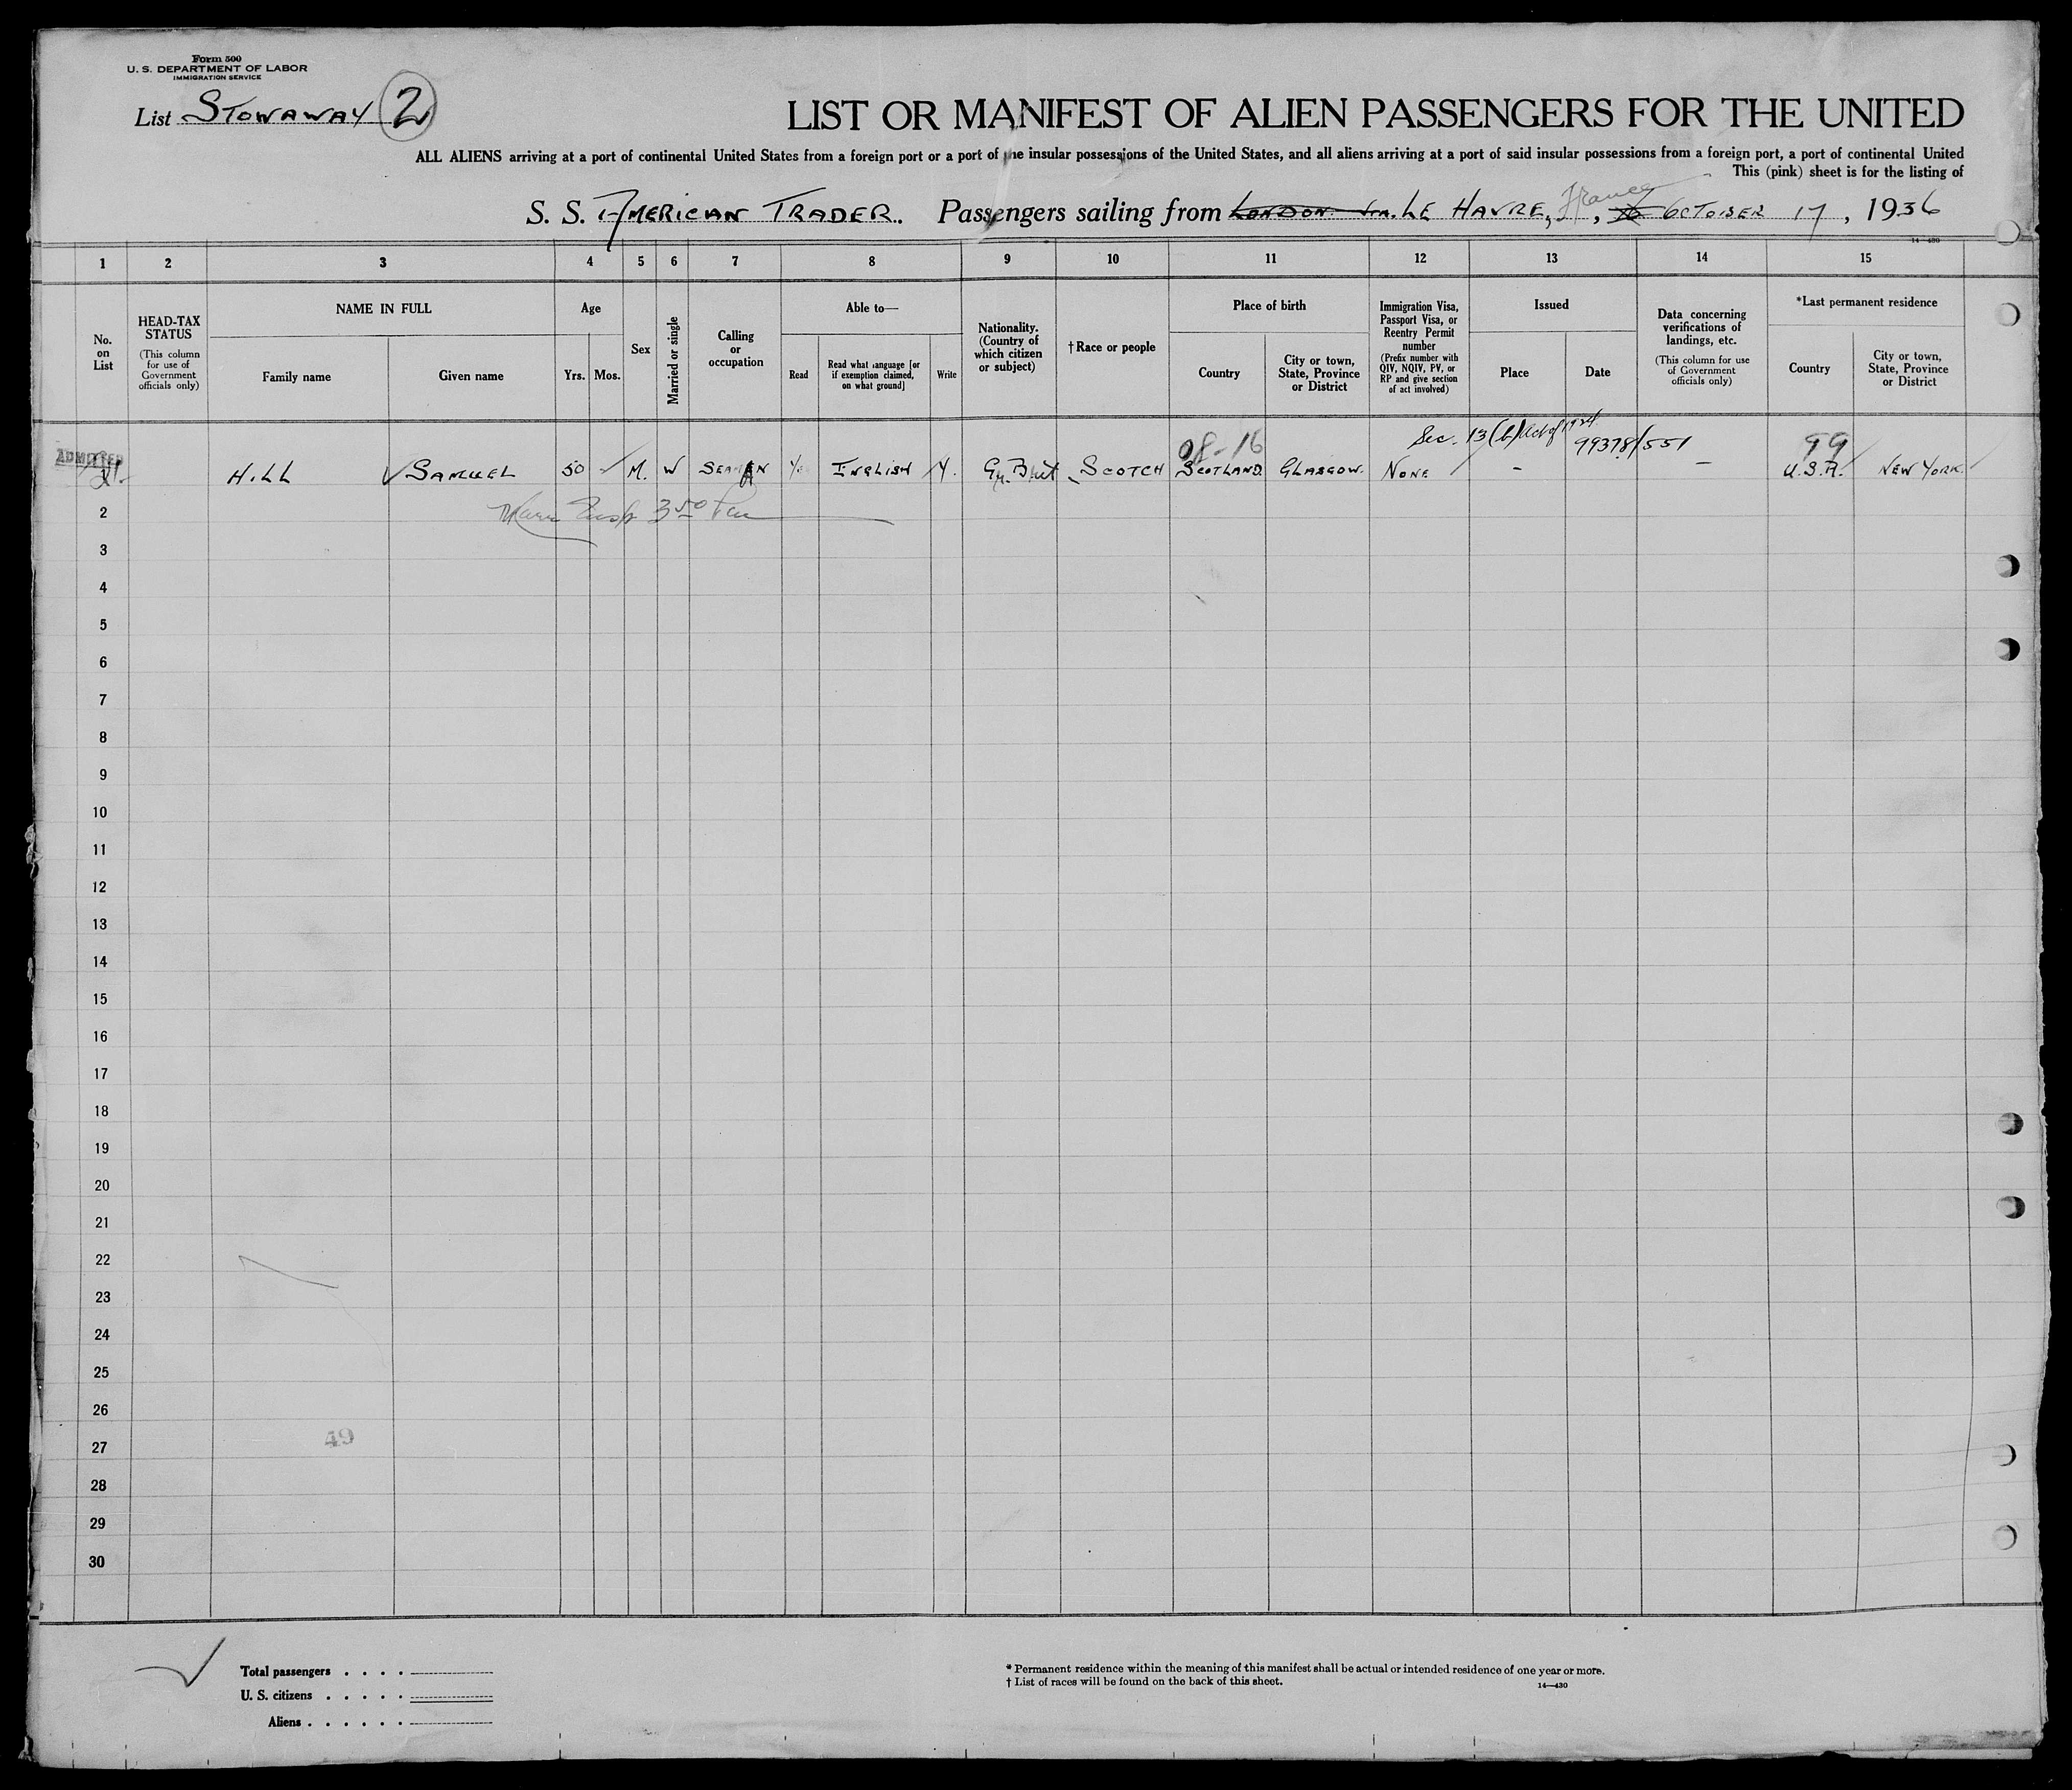 Form 500
U. S. DEPARTMENT OF LABOR
IMMIGRATION SERVICE
List STOWAWAY 2
LIST OR MANIFEST OF ALIEN PASSENGERS FOR THE UNITED
ALL ALIENS arriving at a port of continental United States from a foreign port or a port of the insular possessions of the United States, and all aliens arriving at a port of said insular possessions from a foreign port, a port of continental United
This (pink) sheet is for the listing of
S. S. AMERICAN TRADER. Passengers sailing from LONDON LE HAVRE, France, OCTOBER 17, 1936
14—430
1 2 3 4 5 6 7 8 9 10 11 12 13 14 15
No. on List
HEAD-TAX STATUS
(This column for use of Government officials only)
NAME IN FULL
Family name
Given name
Age
Yrs.
Mos.
Sex
Married or single
Calling or occupation
Able to—
Read
Read what language [or if exemption claimed, on what ground]
Write
Nationality. (Country of which citizen or subject)
†Race or people
Place of birth
Country
City or town, State, Province or District
Immigration Visa, Passport Visa, or Reentry Permit number
(Prefix number with QIV, NQIV, PV, or RP and give section of act involved)
Issued
Place
Date
Data concerning verifications of landings, etc.
(This column for use of Government officials only)
*Last permanent residence
Country
City or town, State, Province or District
08-16 Sec. 13(b) Act of 1924 99378/551 99
ADMITTED
1 HILL SAMUEL 50 M. W SEAMAN Y. ENGLISH Y. Gr. Brit SCOTCH SCOTLAND GLASGOW. NONE – – U.S.A. NEW YORK.
2
3
4
5
6
7
8
9
10
11
12
13
14
15
16
17
18
19
20
21
22
23
24
25
26
27
49
28
29
30
Total passengers . . . .
U. S. citizens . . . . .
Aliens . . . . . .
* Permanent residence within the meaning of this manifest shall be actual or intended residence of one year or more.
† List of races will be found on the back of this sheet.
14—430